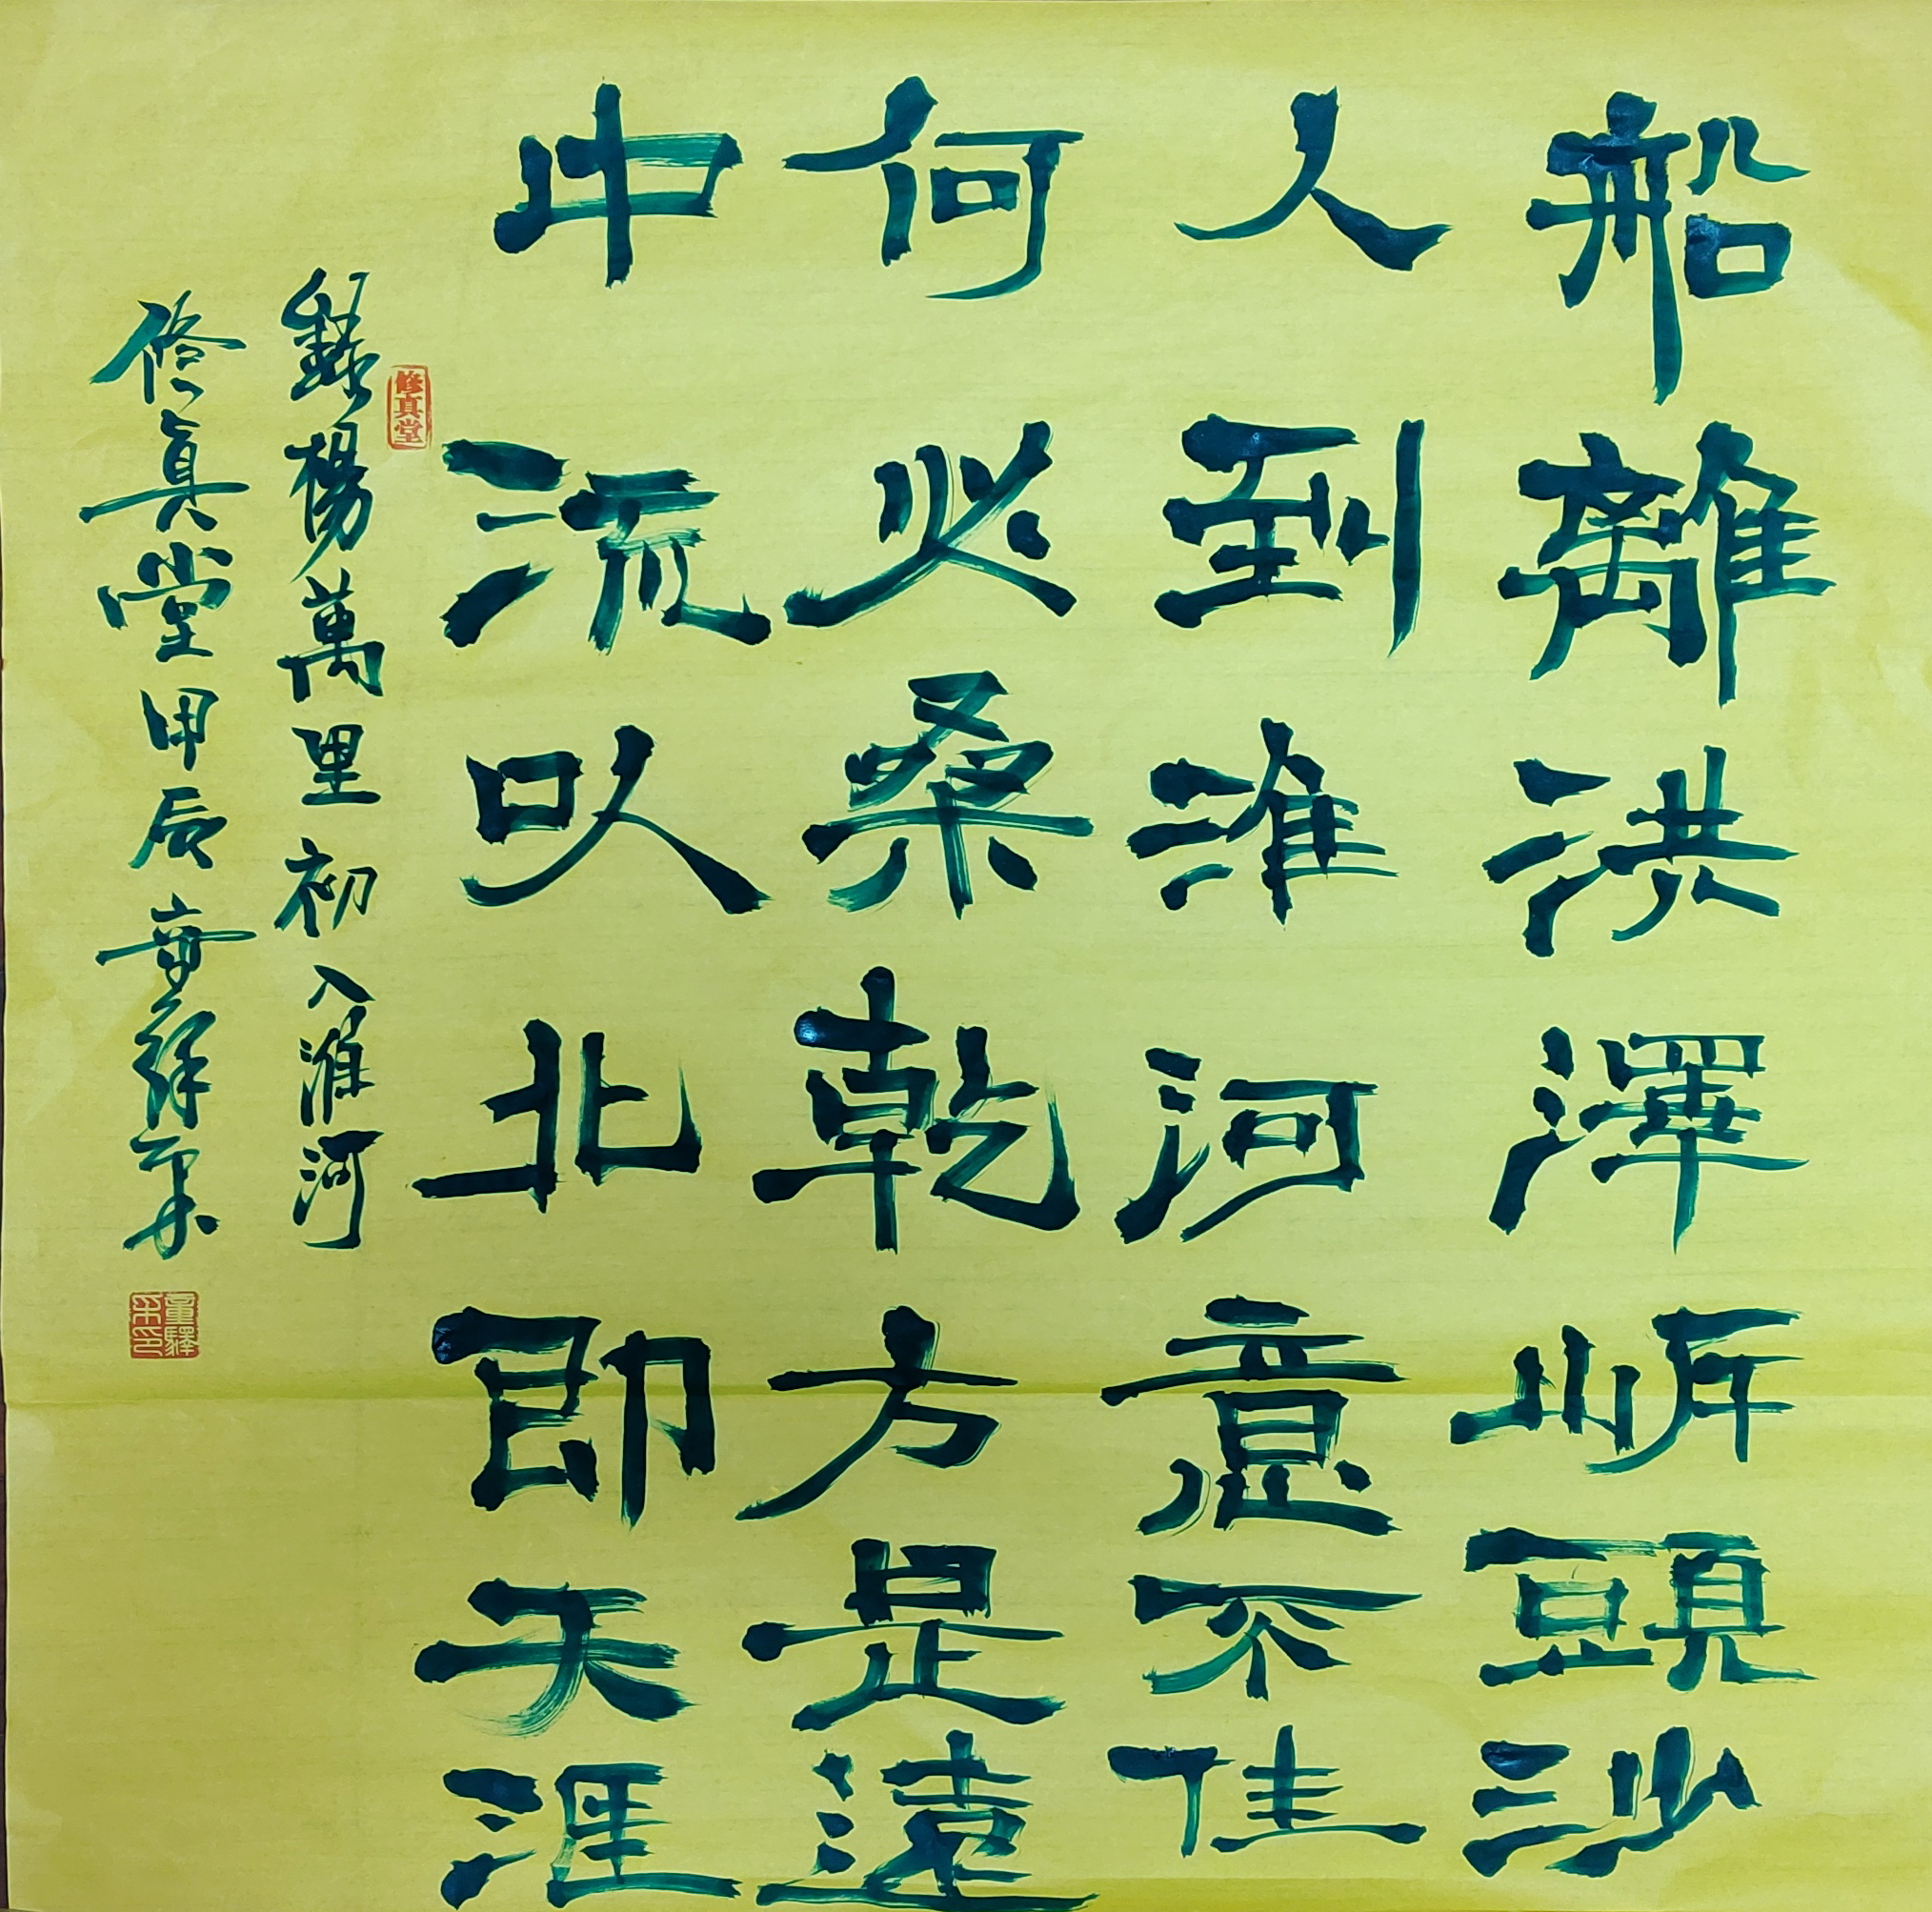 船離洪澤岸頭沙
人到淮河意不佳
何必桑乾方是遠
中流以北即天涯
修真堂
錄楊萬里初入淮河
修真堂甲辰童驛采
童驛采印